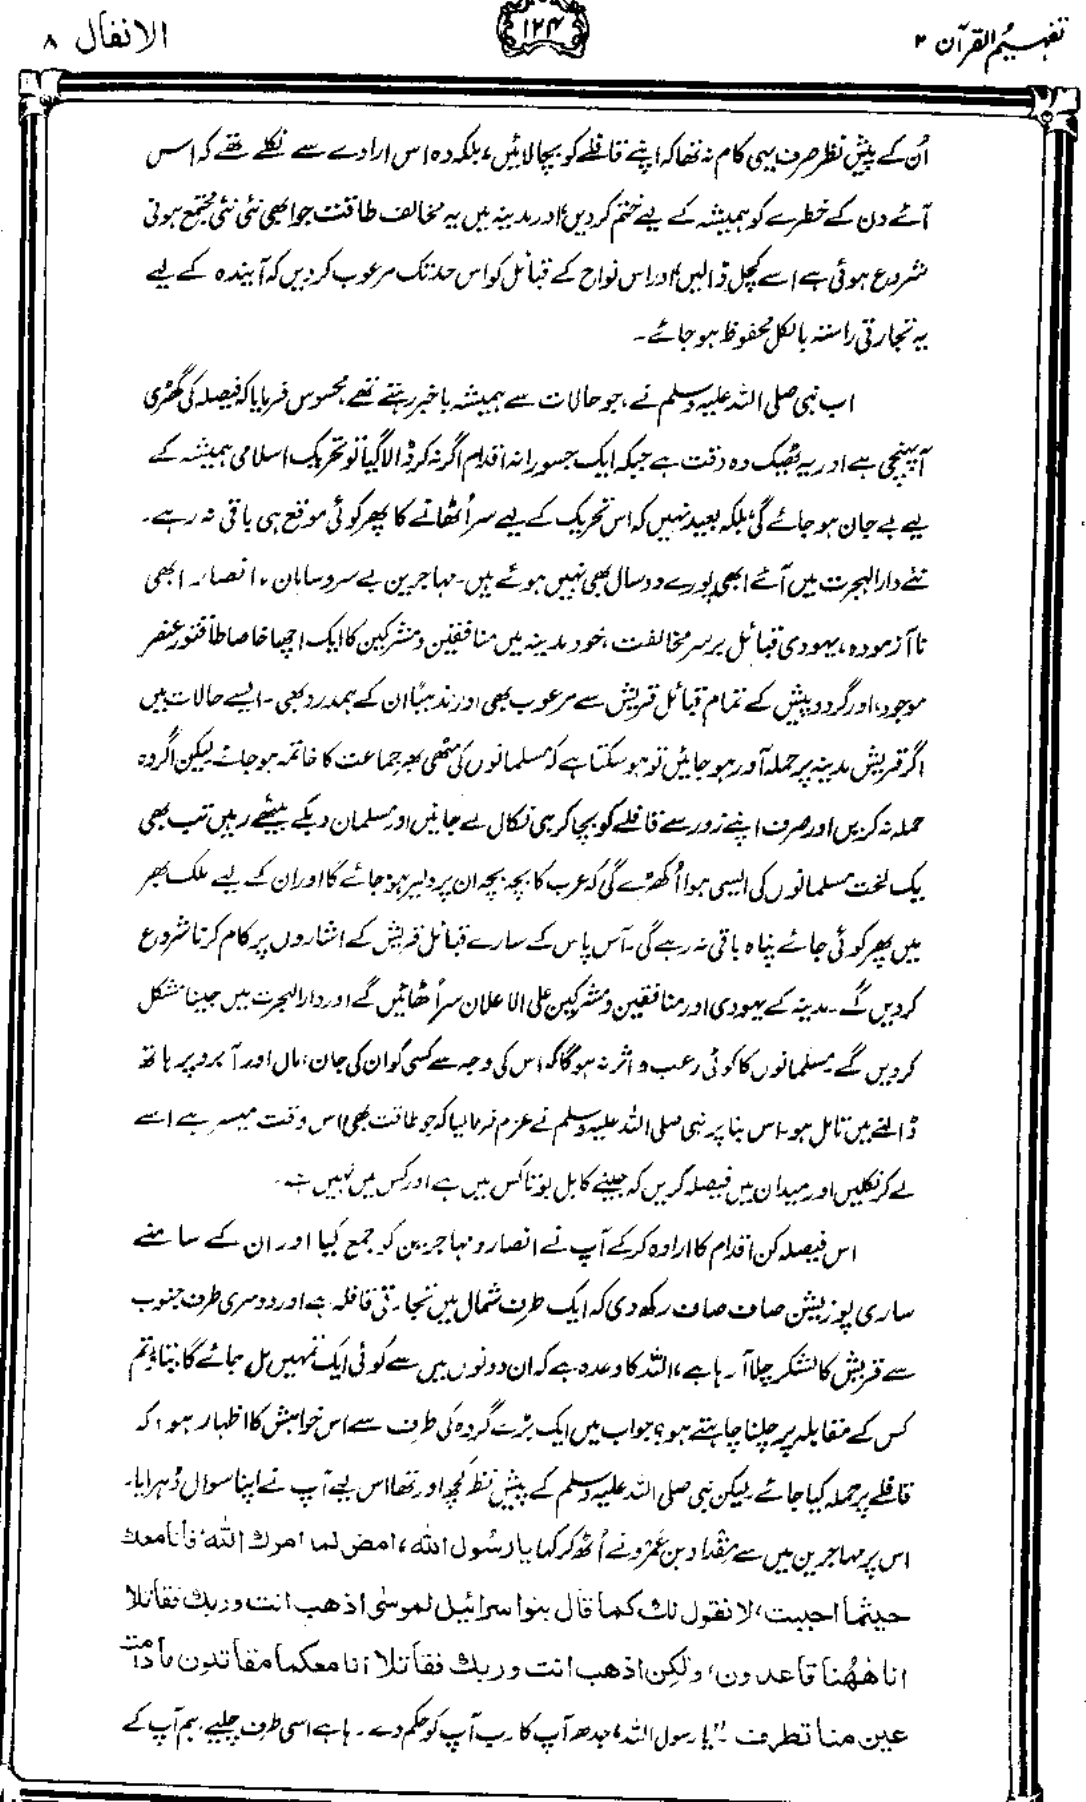 تفہیم القرآن ۲
۱۲۴
الانفال ۸
اُن کے پیشِ نظر صرف یہی کام نہ تھا کہ اپنے قافلے کو بچا لائیں، بلکہ وہ اس ارادے سے نکلے تھے کہ اس
آئے دن کے خطرے کو ہمیشہ کے لیے ختم کردیں، اور مدینہ میں یہ مخالف طاقت جو ابھی نئی نئی مجتمع ہونی
شروع ہوئی ہے اسے کچل ڈالیں، اور اس نواح کے قبائل کو اس حد تک مرعوب کردیں کہ آیندہ کے لیے
یہ تجارتی راستہ بالکل محفوظ ہوجائے۔
اب نبی صلی اللہ علیہ وسلم نے، جو حالات سے ہمیشہ باخبر رہتے تھے، محسوس فرمایا کہ فیصلہ کی گھڑی
آپہنچی ہے اور یہ ٹھیک وہ وقت ہے جبکہ ایک جسورانہ اقدام اگر نہ کر ڈالا گیا تو تحریک اسلامی ہمیشہ کے
لیے بے جان ہوجائے گی، بلکہ بعید نہیں کہ اس تحریک کے لیے سر اُٹھانے کا پھر کوئی موقع ہی باقی نہ رہے۔
نئے دارالہجرت میں آئے ابھی پورے دو سال بھی نہیں ہوئے ہیں۔ مہاجرین بے سروسامان، انصار ابھی
ناآزمودہ، یہودی قبائل برسرِ مخالفت، خود مدینہ میں منافقین و مشرکین کا ایک اچھا خاصا طاقتور عنصر
موجود، اور گرد و پیش کے تمام قبائل قریش سے مرعوب بھی اور مذہباً ان کے ہمدرد بھی۔ ایسے حالات میں
اگر قریش مدینہ پر حملہ آور ہوجائیں تو ہوسکتا ہے کہ مسلمانوں کی مٹھی بھر جماعت کا خاتمہ ہوجائے لیکن اگر وہ
حملہ نہ کریں اور صرف اپنے زور سے قافلے کو بچا کر ہی نکال لے جائیں اور مسلمان دبکے بیٹھے رہیں تب بھی
یک لخت مسلمانوں کی ایسی ہوا اُکھڑے گی کہ عرب کا بچہ بچہ ان پر دلیر ہوجائے گا اور ان کے لیے ملک بھر
میں پھر کوئی جائے پناہ باقی نہ رہے گی۔ آس پاس کے سارے قبائل قریش کے اشاروں پر کام کرنا شروع
کردیں گے۔ مدینہ کے یہودی اور منافقین و مشرکین علی الاعلان سر اُٹھائیں گے اور دارالہجرت میں جینا مشکل
کردیں گے۔ مسلمانوں کا کوئی رعب و اثر نہ ہوگا کہ اس کی وجہ سے کسی کو ان کی جان، مال اور آبرو پر ہاتھ
ڈالنے میں تامل ہو۔ اس بنا پر نبی صلی اللہ علیہ وسلم نے عزم فرمالیا کہ جو طاقت بھی اس وقت میسر ہے اسے
لے کر نکلیں اور میدان میں فیصلہ کریں کہ جینے کا بل بوتا کس میں ہے اور کس میں نہیں ہے۔
اس فیصلہ کن اقدام کا ارادہ کرکے آپ نے انصار و مہاجرین کو جمع کیا اور ان کے سامنے
ساری پوزیشن صاف صاف رکھ دی کہ ایک طرف شمال میں تجارتی قافلہ ہے اور دوسری طرف جنوب
سے قریش کا لشکر چلا آرہا ہے، اللہ کا وعدہ ہے کہ ان دونوں میں سے کوئی ایک تمہیں مل جائے گا، بتاؤ تم
کس کے مقابلہ پر چلنا چاہتے ہو؟ جواب میں ایک بڑے گروہ کی طرف سے اس خواہش کا اظہار ہوا کہ
قافلے پر حملہ کیا جائے۔ لیکن نبی صلی اللہ علیہ وسلم کے پیشِ نظر کچھ اور تھا اس لیے آپ نے اپنا سوال دُہرایا۔
اس پر مہاجرین میں سے مِقداد بن عَمرو نے اُٹھ کر کہا یا رسول اللہ، امض لما امرك الله، فانا معك
حيثما احببت، لا نقول لك كما قال بنوا سرائيل لموسى اذهب انت وربك فقاتلا
انا ههنا قاعدون، ولكن اذهب انت وربك فقاتلا انا معكما مقاتلون ما دامت
عين منا تطرف۔ "یا رسول اللہ، جدھر آپ کا رب آپ کو حکم دے رہا ہے اسی طرف چلیے، ہم آپ کے